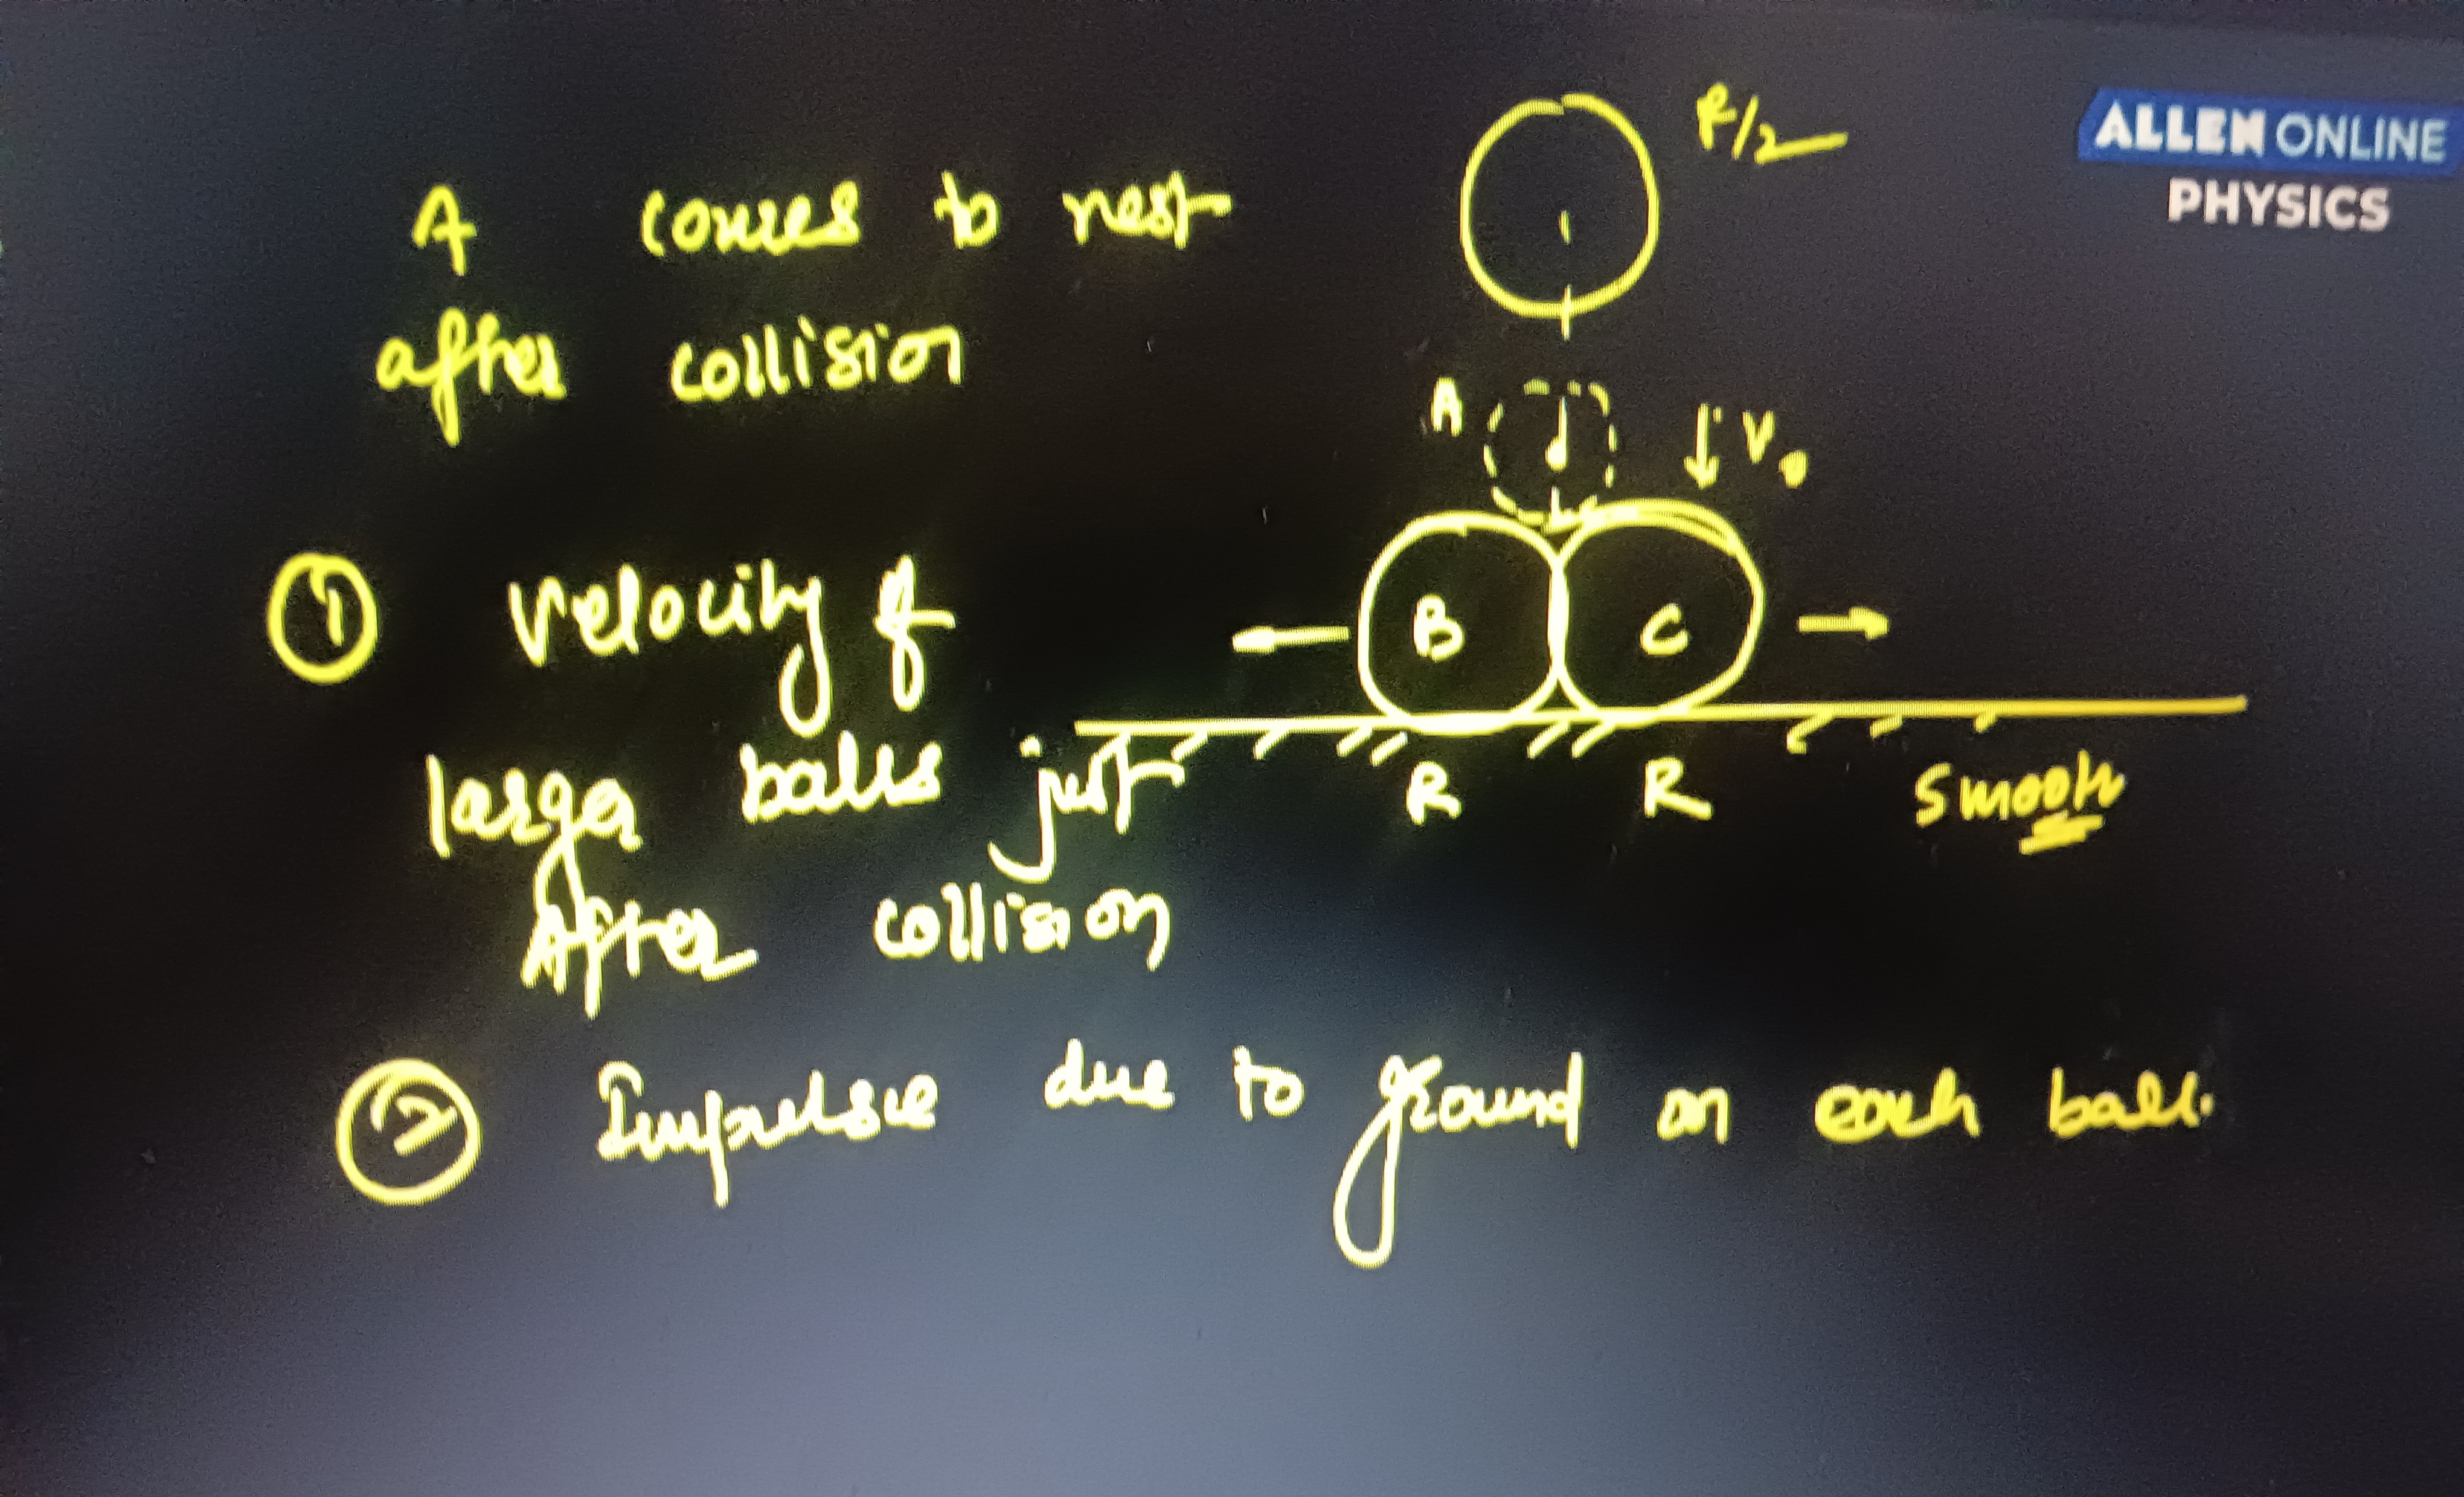 ALLEN ONLINE
PHYSICS
R/2
A comes to rest
after collision
A
V₀
① Velocity of
B
C
larger balls just
R
R
Smooth
After collision
② Impulse due to ground on each ball.